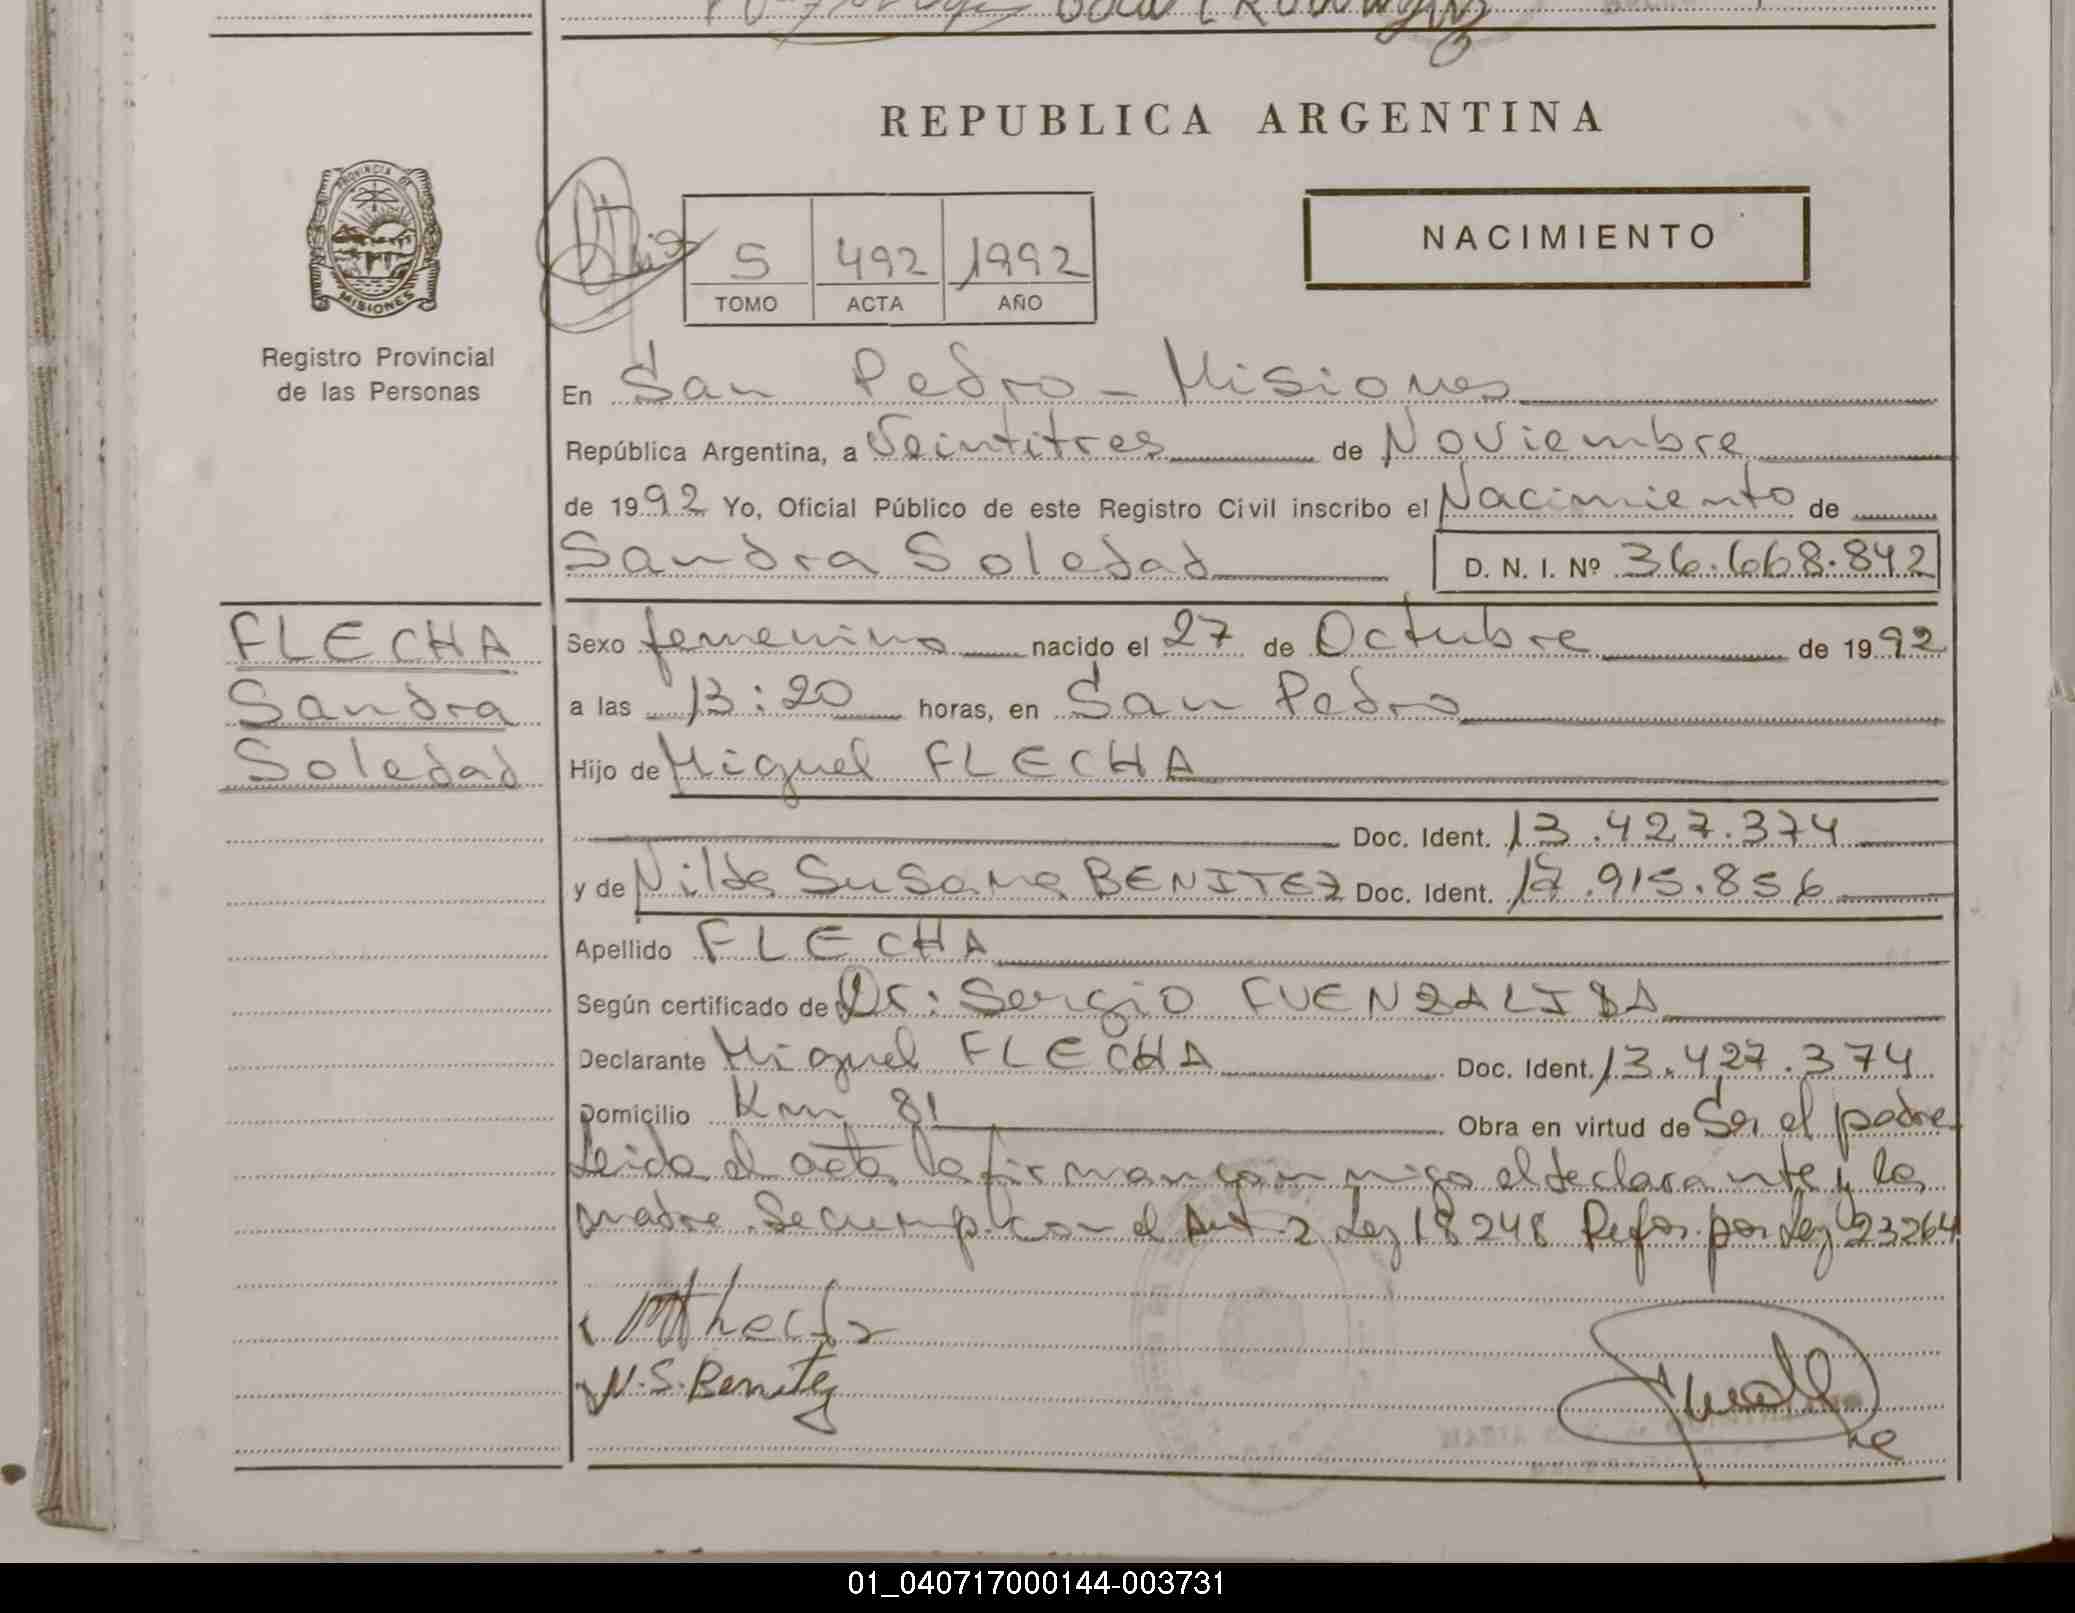 REPUBLICA ARGENTINA
PROVINCIA DE
MISIONES
Registro Provincial
de las Personas
5 492 1992
TOMO ACTA AÑO
NACIMIENTO
En San Pedro - Misiones
República Argentina, a Veintitres de Noviembre
de 1992 Yo, Oficial Público de este Registro Civil inscribo el Nacimiento de
Sandra Soledad D. N. I. Nº 36.668.842
FLECHA
Sandra
Soledad
Sexo femenino nacido el 27 de Octubre de 1992
a las 13:20 horas, en San Pedro
Hijo de Miguel FLECHA
Doc. Ident. 13.427.374
y de Nilda Susana BENITEZ Doc. Ident. 17.915.856
Apellido FLECHA
Según certificado de Dr: Sergio FUENZALIDA
Declarante Miguel FLECHA Doc. Ident. 13.427.374
Domicilio Km 81 Obra en virtud de Ser el padre
Leida el acta la firman conmigo el declarante y la
madre. Se cump. con el Art 2 Ley 18248 Refor. por Ley 23264
N.S. Benitez
01_040717000144-003731